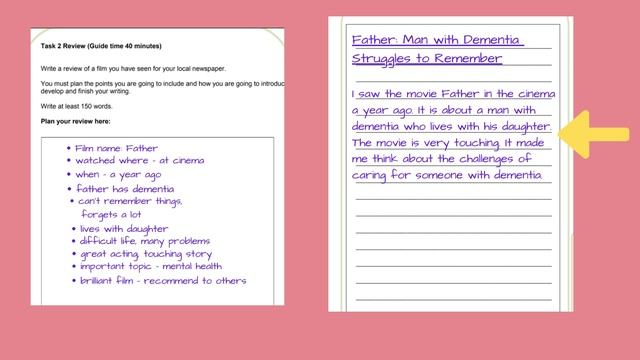 Task 2 Review (Guide time 40 minutes)
Write a review of a film you have seen for your local newspaper.
You must plan the points you are going to include and how you are going to introduc
develop and finish your writing.
Write at least 150 words.
Plan your review here:
• Film name: Father
• watched where - at cinema
• when - a year ago
• father has dementia
• can't remember things,
forgets a lot
• lives with daughter
• difficult life, many problems
• great acting, touching story
• important topic - mental health
• brilliant film - recommend to others
Father: Man with Dementia
Struggles to Remember
I saw the movie Father in the cinema
a year ago. It is about a man with
dementia who lives with his daughter.
The movie is very touching. It made
me think about the challenges of
caring for someone with dementia.